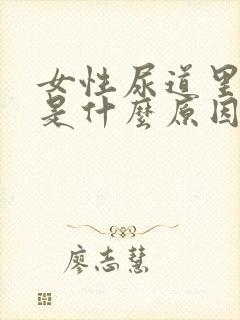 女性尿道里
是什麽原因
廖志慧